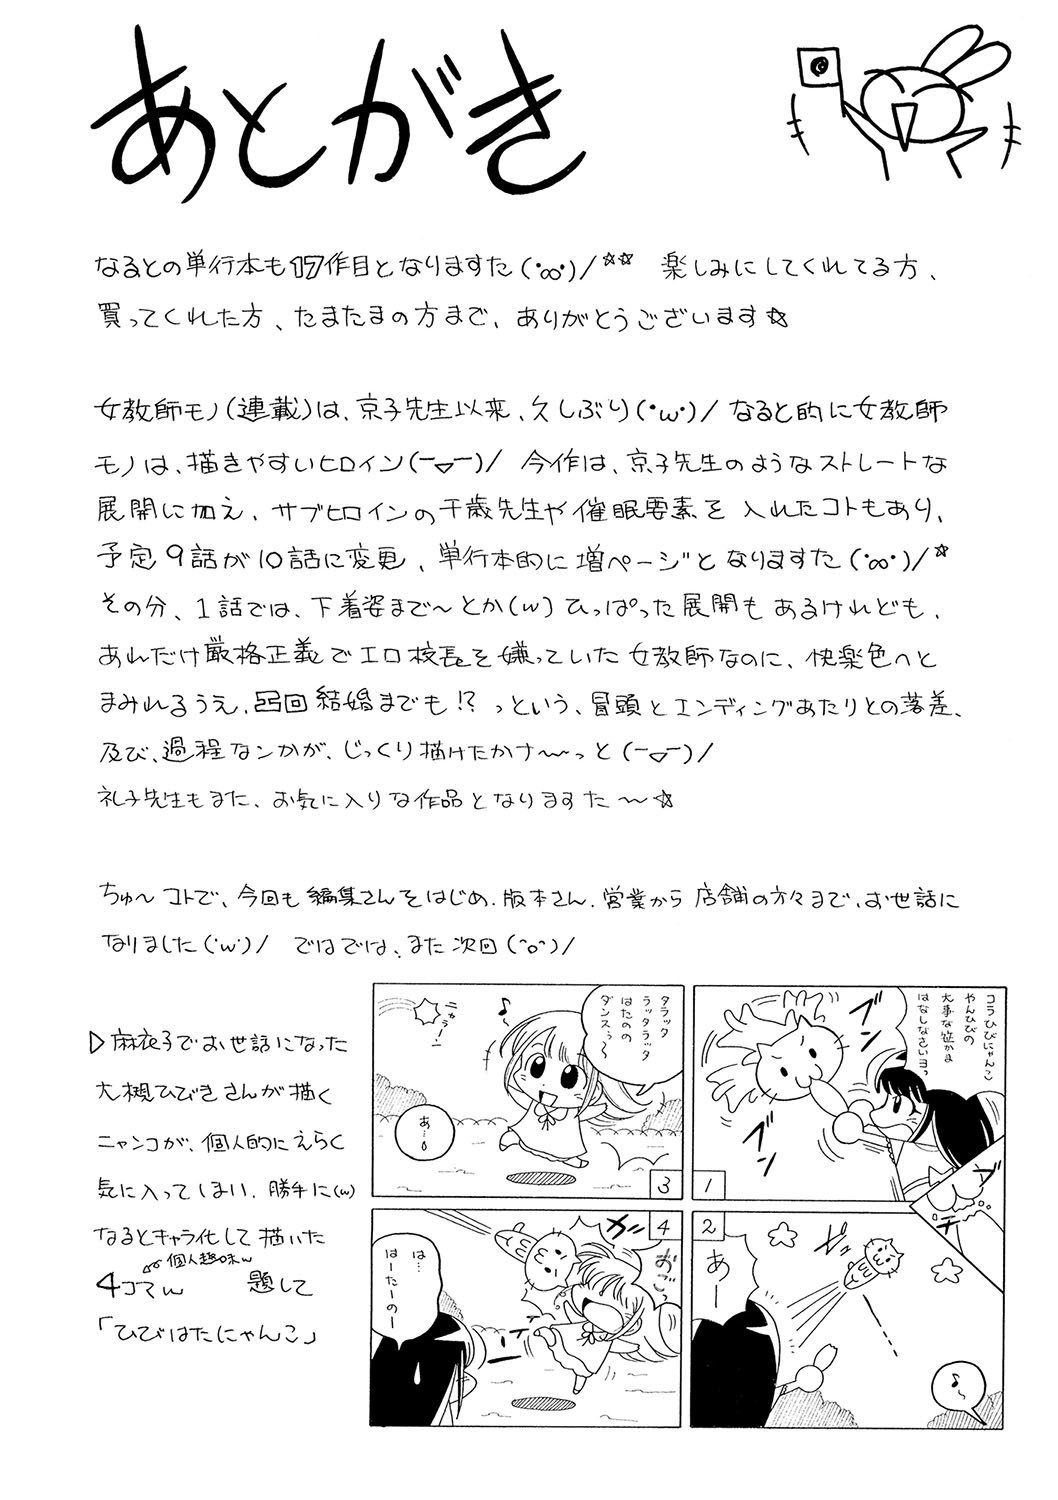 あとがき
なるとの単行本も17作目となりますた(･∞･)/☆☆ 楽しみにしてくれてる方、
買ってくれた方、たまたまの方まで、ありがとうございます☆
女教師モノ(連載)は、京子先生以来、久しぶり(･ω･)/ なると的に女教師
モノは、描きやすいヒロイン(ー▽ー)/ 今作は、京子先生のようなストレートな
展開に加え、サブヒロインの千歳先生や催眠要素を入れたコトもあり、
予定9話が10話に変更、単行本的に増ページとなりますた(･∞･)/☆
その分、1話では、下着姿まで〜とか(w)ひっぱった展開もあるけれども、
あれだけ厳格正義でエロ校長を嫌っていた女教師なのに、快楽色へと
まみれるうえ、凸回結婚までも!? っという、冒頭とエンディングあたりとの落差、
及び、過程なンかが、じっくり描けたかナ〜っと(ー▽ー)/
礼子先生もまた、お気に入りな作品となりますた〜☆
ちゅ〜コトで、今回も編集さんをはじめ、版本さん、営業から店舗の方々まで、お世話に
なりました(･ω･)/ ではでは、また次回(^o^)/
▷麻衣子でお世話になった
大槻ひびきさんが描く
ニャンコが、個人的にえらく
気に入ってしまい、勝手に(w)
なるとキャラ化して描いた
個人趣味w
4コマw 題して
「ひびはたにゃんこ」
コラひびにゃんこ
やんひびの
大事な
はなしなさいヨっ
ブン
ブン
1
2
あー
ゼッ
♪〜
タラッタ
ラッタラッタ
はたのの
ダンスぅ〜
♪
ニャラー!
あ…
3
4
ガッ
おごっ
は…
はーたーのー